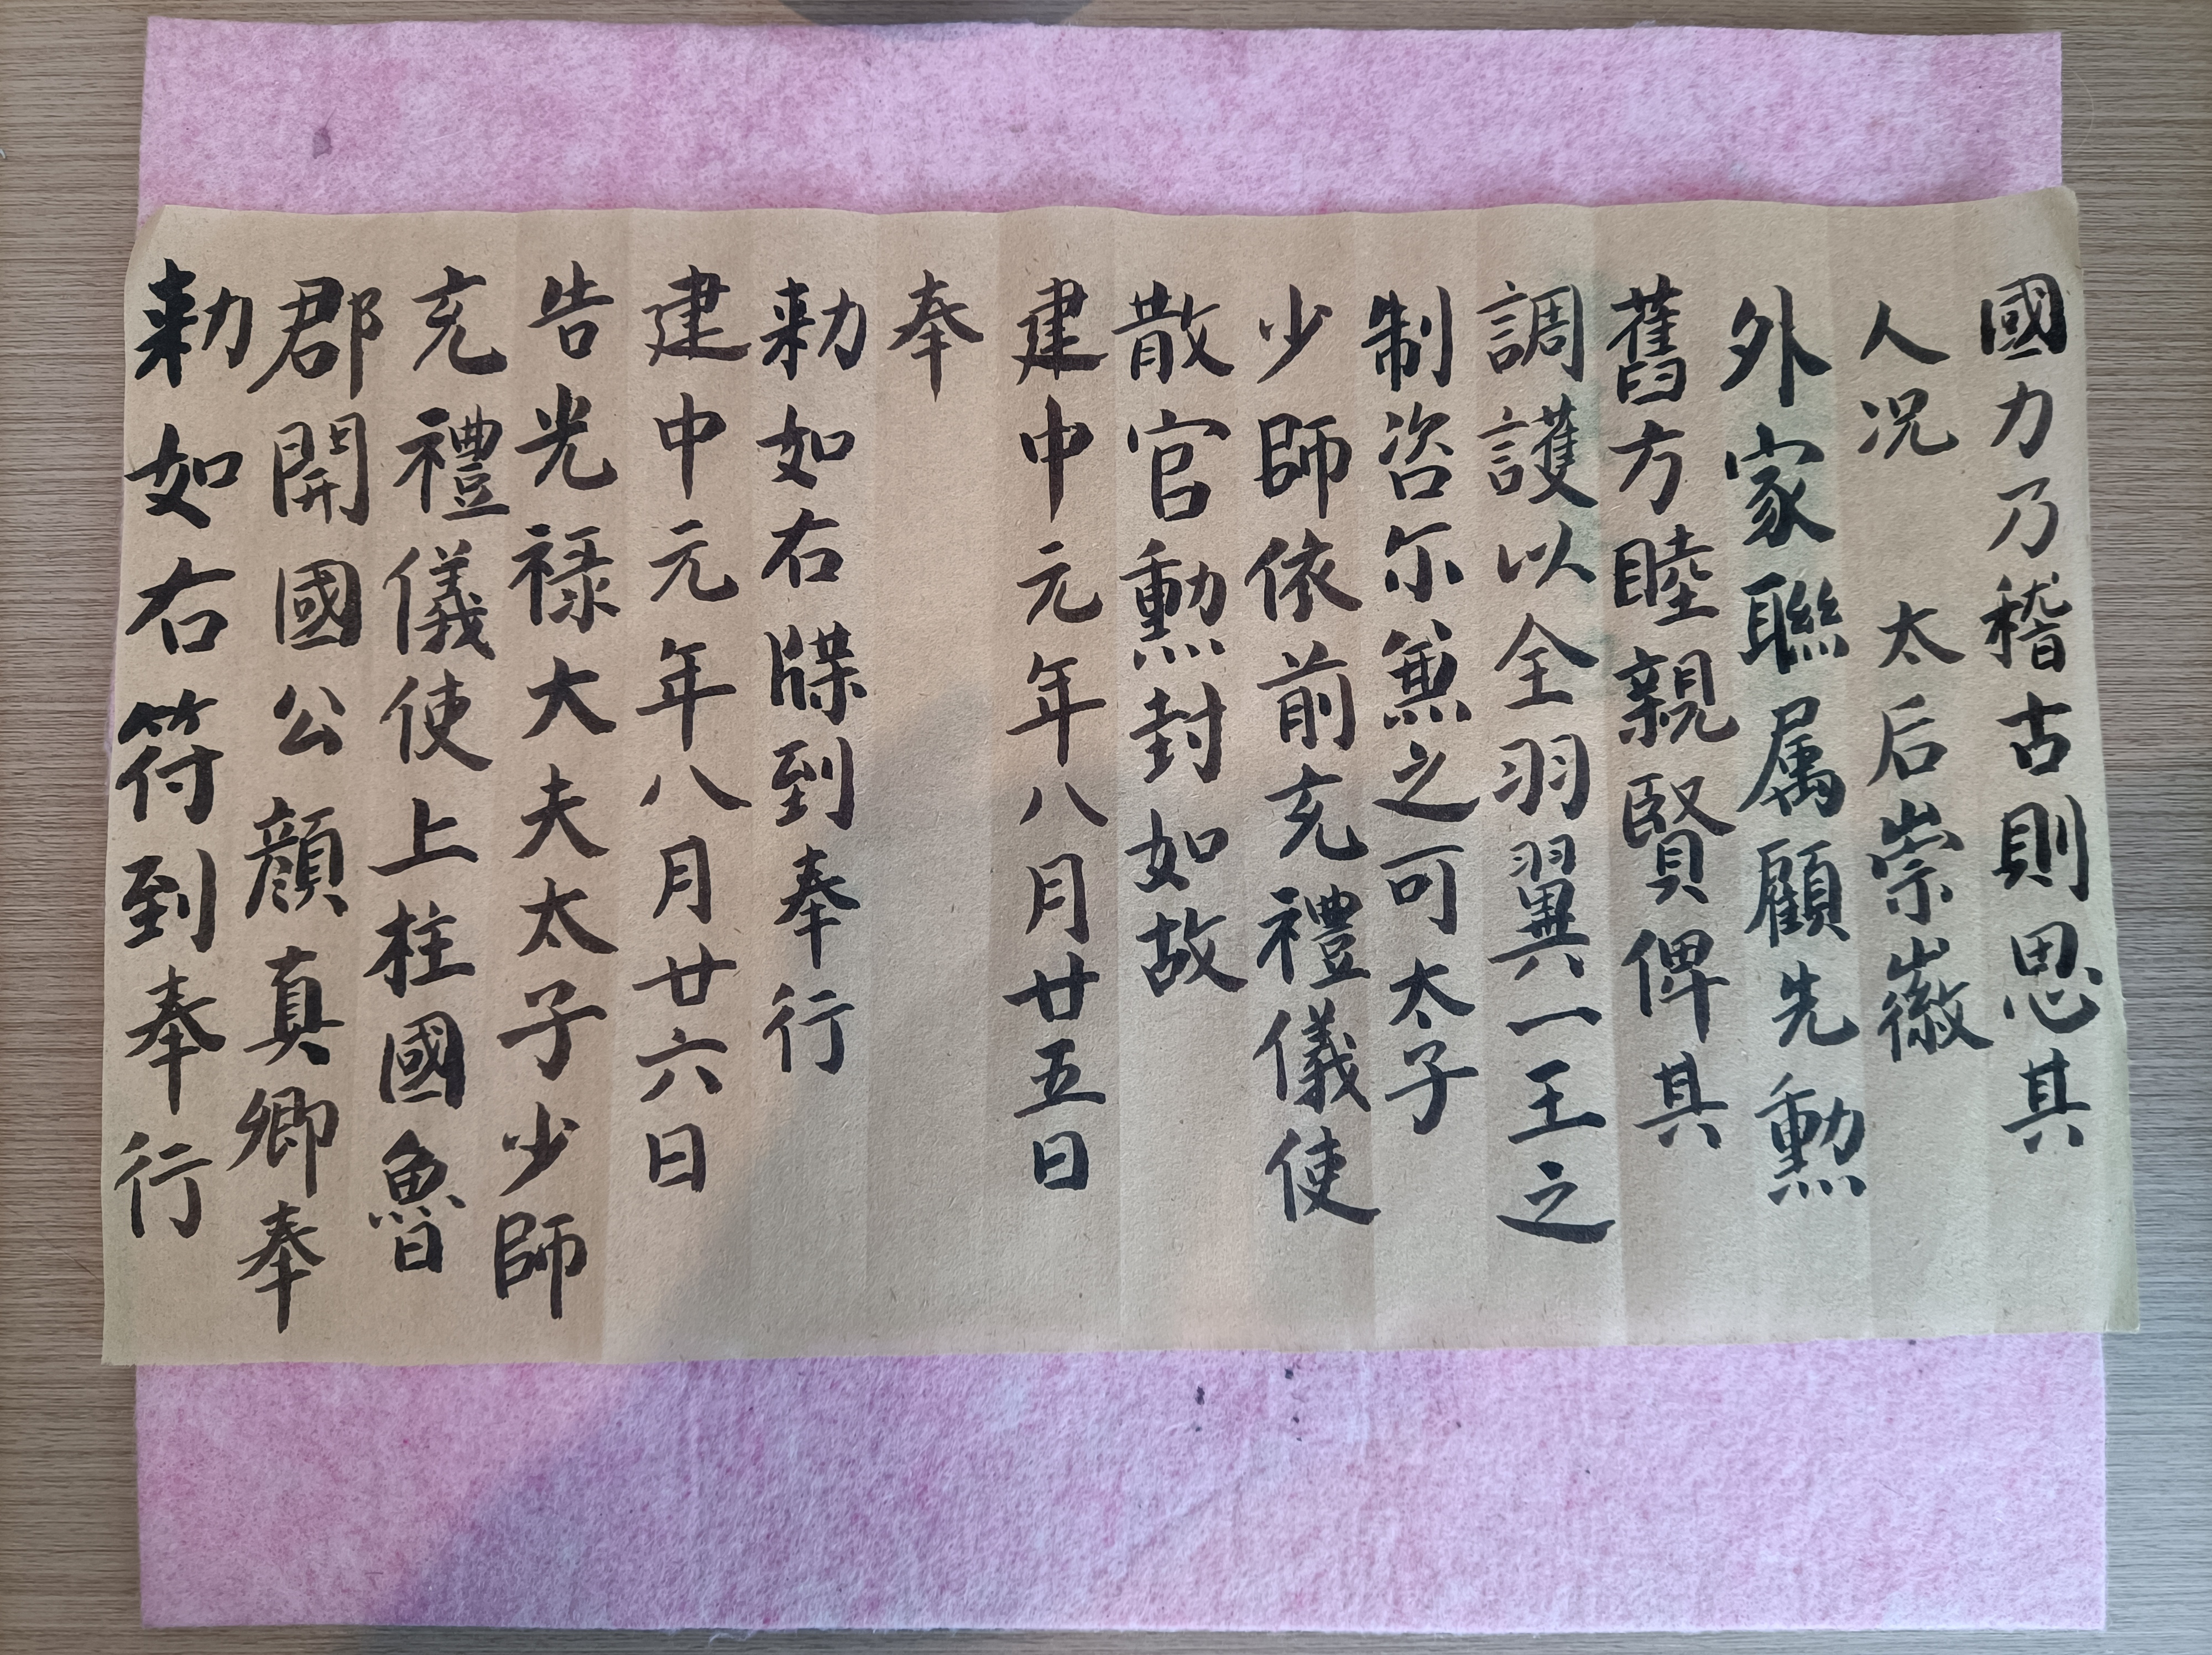 國力乃稽古則思其
人况 太后崇徽
外家聯属顧先勳
舊方睦親賢俾其
調護以全羽翼一王之
制咨尓無之可太子
少師依前充禮儀使
散官勳封如故
建中元年八月廿五日
奉
勑如右牒到奉行
建中元年八月廿六日
告光禄大夫太子少師
充禮儀使上柱國魯
郡開國公顔真卿奉
勑如右符到奉行